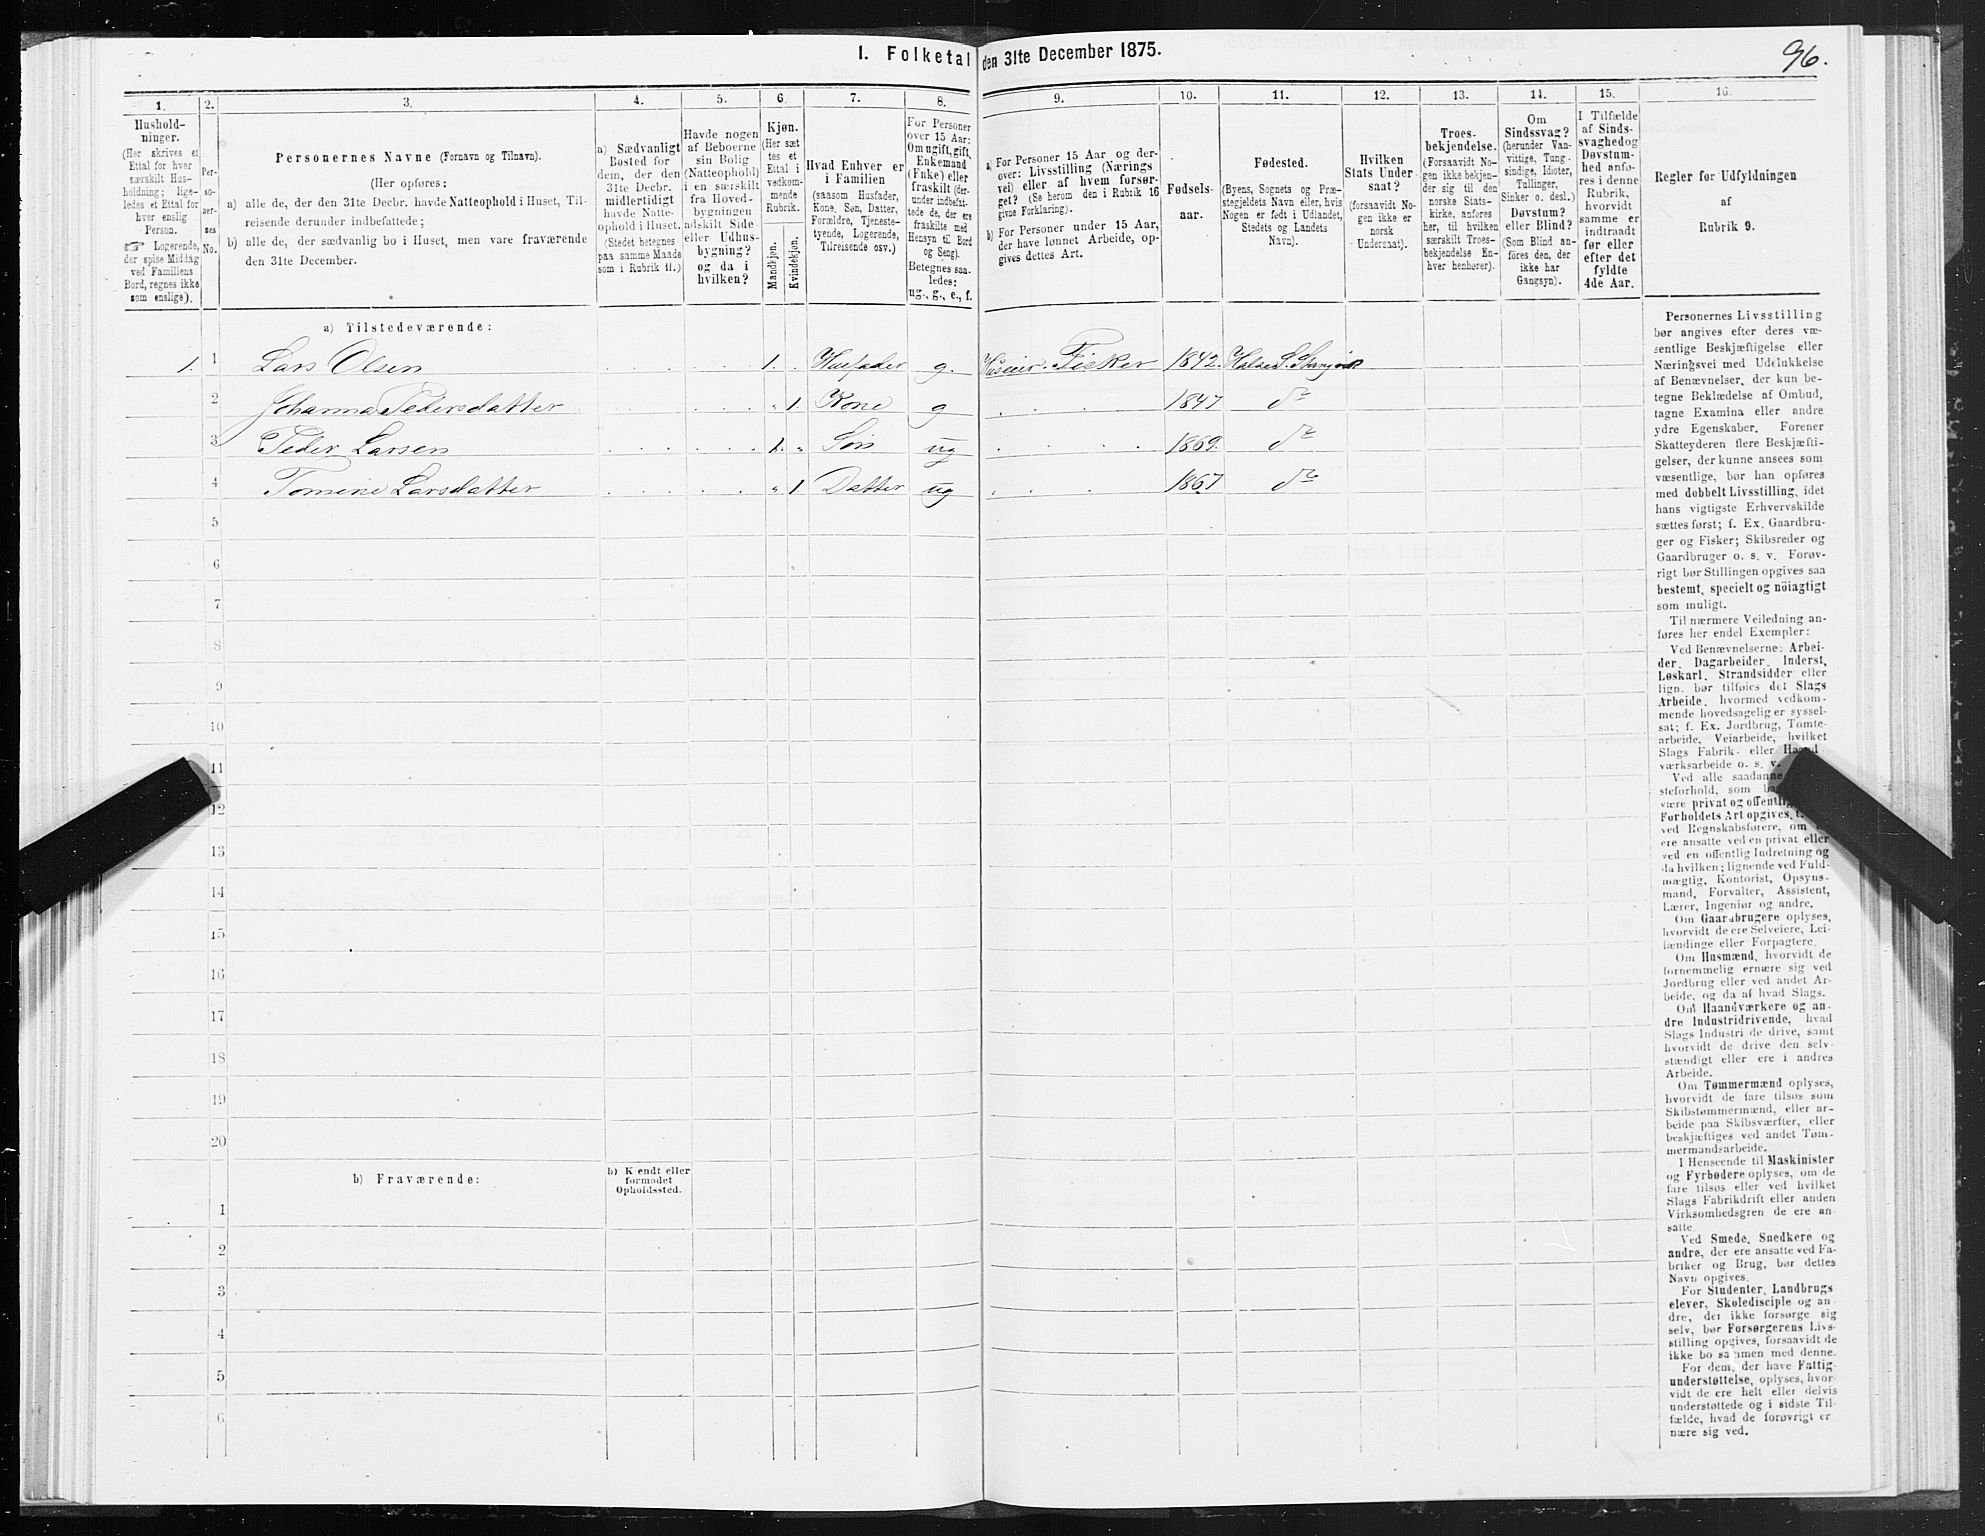 1. Folketal den 31te December 1875.
96.
1.
2.
3.
4.
5.
6.
7.
8.
9.
10.
11.
12.
13.
14.
15.
16.
Hushold-
ninger.
(Her skrives et
Ettal for hver
særskilt Hus-
holdning; lige-
ledes et Ettal for
hver enslig
Person.
☞ Logerende,
der spise Middag
ved Familiens
Bord, regnes ikke
som enslige).
Per-
so-
ner-
nes
No.
Personernes Navne (Fornavn og Tilnavn).
(Her opføres:
a) alle de, der den 31te Decbr. havde Natteophold i Huset, Til-
reisende derunder indbefattede;
b) alle de, der sædvanlig bo i Huset, men vare fraværende
den 31te December.
a) Sædvanligt
Bosted for
dem, der den
31te Decbr.
midlertidigt
havde Natte-
ophold i Huset.
(Stedet betegnes
paa samme Maade
som i Rubrik 11.)
Havde nogen
af Beboerne
sin Bolig
(Natteophold)
i en særskilt
fra Hoved-
bygningen
adskilt Side
eller Udhus-
bygning?
og da i
hvilken?
Kjøn.
(Her sæt
tes et
Ettal i
vedkom-
mende
Rubrik.
Mandkjøn.
Kvindekjøn.
Hvad Enhver er
i Familien
(saasom Husfader,
Kone, Søn, Datter,
Forældre, Tjeneste-
tyende, Logerende,
Tilreisende osv.)
For Personer
over 15 Aar:
Om ugift, gift,
Enkemand
(Enke) eller
fraskilt (der-
under indbefat-
tede de, der ere
fraskilte med
Hensyn til Bord
og Seng).
Betegnes saa-
ledes:
ug., g., e., f.
a) For Personer 15 Aar og der-
over: Livsstilling (Nærings
vei) eller af hvem forsør-
get? (Se herom den i Rubrik 16
givne Forklaring).
b) For Personer under 15 Aar,
der have lønnet Arbeide, op-
gives dettes Art.
Fødsels-
aar.
Fødested.
(Byens, Sognets og Præ-
stegjeldets Navn eller, hvis
Nogen er født i Udlandet,
Stedets og Landets
Navn).
Hvilken
Stats Under
saat?
(forsaavidt No-
gen ikke er
norsk
Undersaat).
Troes-
bekjendelse.
(Forsaavidt No-
gen ikke bekjen-
der sig til den
norske Stats-
kirke, anføres
her, til hvilken
særskilt Troes-
bekjendelse En-
hver henhører).
Om
Sindssvag?
(herunder Van-
vittige, Tung-
sindige, Idioter,
Tullinger,
Sinker o. desl.)
Døvstum?
eller Blind?
(Som Blind an-
föres den, der
ikke har
Gangsyn).
I Tilfælde
af Sinds-
svaghedog
Døvstum-
hed anfø-
res i denne
Rubrik,
hvorvidt
samme er
indtraadt
før eller
efter det
fyldte
4de Aar.
Regler for Udfyldningen
af
Rubrik 9.
a) Tilstedeværende:
1. 1 Lars Olsen 1. Husfader g. Huseier. Fisker 1842.
2 Johanna Pedersdatter 1. Kone g 1847 do
3 Peder Larsen 1. Søn ug 1869. do
4 Tomine Larsdatter 1 Datter ug 1867 do
5
6
7
8
9
10
11
12
13
14
15
16
17
18
19
20
b) Fraværende:
b) Kjendt eller
formodet
Opholdssted.
1
2
3
4
5
6
Personernes Livsstilling
bør angives efter deres væ-
sentlige Beskjæftigelse eller
Næringsvei med Udelukkelse
af Benævnelser, der kun be-
tegne Beklædelse af Ombud,
tagne Examina eller andre
ydre Egenskaber. Forener
Skatteyderen flere Beskjæfti-
gelser, der kunne ansees som
væsentlige, bør han opføres
med dobbelt Livsstilling, idet
hans vigtigste Erhvervskilde
sættes først; f. Ex. Gaardbru-
ger og Fisker; Skibsreder og
Gaardbruger o. s. v. Forøv-
rigt bør Stillingen opgives saa
bestemt, specielt og nöiagtigt
som muligt.
Til nærmere Veiledning an-
føres her endel Exempler:
Ved Benævnelserne: Arbei-
der, Dagarbeider, Inderst,
Løskarl, Strandsidder eller
lign. bør tilføies det Slags
Arbeide, hvormed vedkom-
mende hovedsagelig er syssel-
sat; f. Ex. Jordbrug, Tomte-
arbeide, Veiarbeide, hvilket
Slags Fabrik- eller
værksarbeide o. s. v.
Ved alle saadanne
steforhold, som
være privat og offentlig
Forholdets Art opgives,
ved Regnskabsførere, om
ere ansatte ved en privat eller
ved en offentlig Indretning og
da hvilken; lignende ved Fuld-
mægtig, Kontorist, Opsyns-
mand, Forvalter, Assistent,
Lærer, Ingeniør og andre.
Om Gaardbrugere oplyses,
hvorvidt de ere Selveiere, Lei-
lændinge eller Forpagtere.
Om Husmænd, hvorvidt de
fornemmelig ernære sig ved
Jordbrug eller ved andet Ar-
beide, og da af hvad Slags.
Om Haandværkere og an-
dre Industridrivende, hvad
Slags Industri de drive, samt
hvorvidt de drive den selv-
stændigt eller ere i andres
Arbeide.
Om Tømmermænd oplyses,
hvorvidt de fare tilsøs som
Skibstømmermænd, eller ar-
beide paa Skibsværfter, eller
beskjæftiges ved andet Tøm-
mermandsarbeide.
I Henseende til Maskinister
og Fyrbødere oplyses, om de
fare tilsøs eller ved hvilket
Slags Fabrikdrift eller anden
Virksomhedsgren de ere an-
satte.
Ved Smede, Snedkere og
andre, der ere ansatte ved Fa-
briker og Brug, bør dettes
Navn opgives.
For Studenter, Landbrugs
elever, Skoledisciple og an-
dre, der ikke forsørge sig
selv, bør Forsørgerens Livs-
stilling opgives, forsaavidt de
ikke bo sammen med denne.
For dem, der have Fattig-
understøttelse, oplyses, hvor-
vidt de ere helt eller delvis
understøttede og i sidste Til-
fælde, hvad de forøvrigt er
nære sig ved.